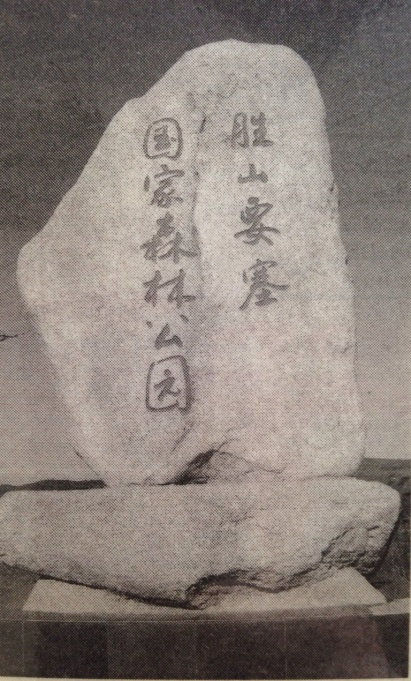 胜山要塞
国家森林公园